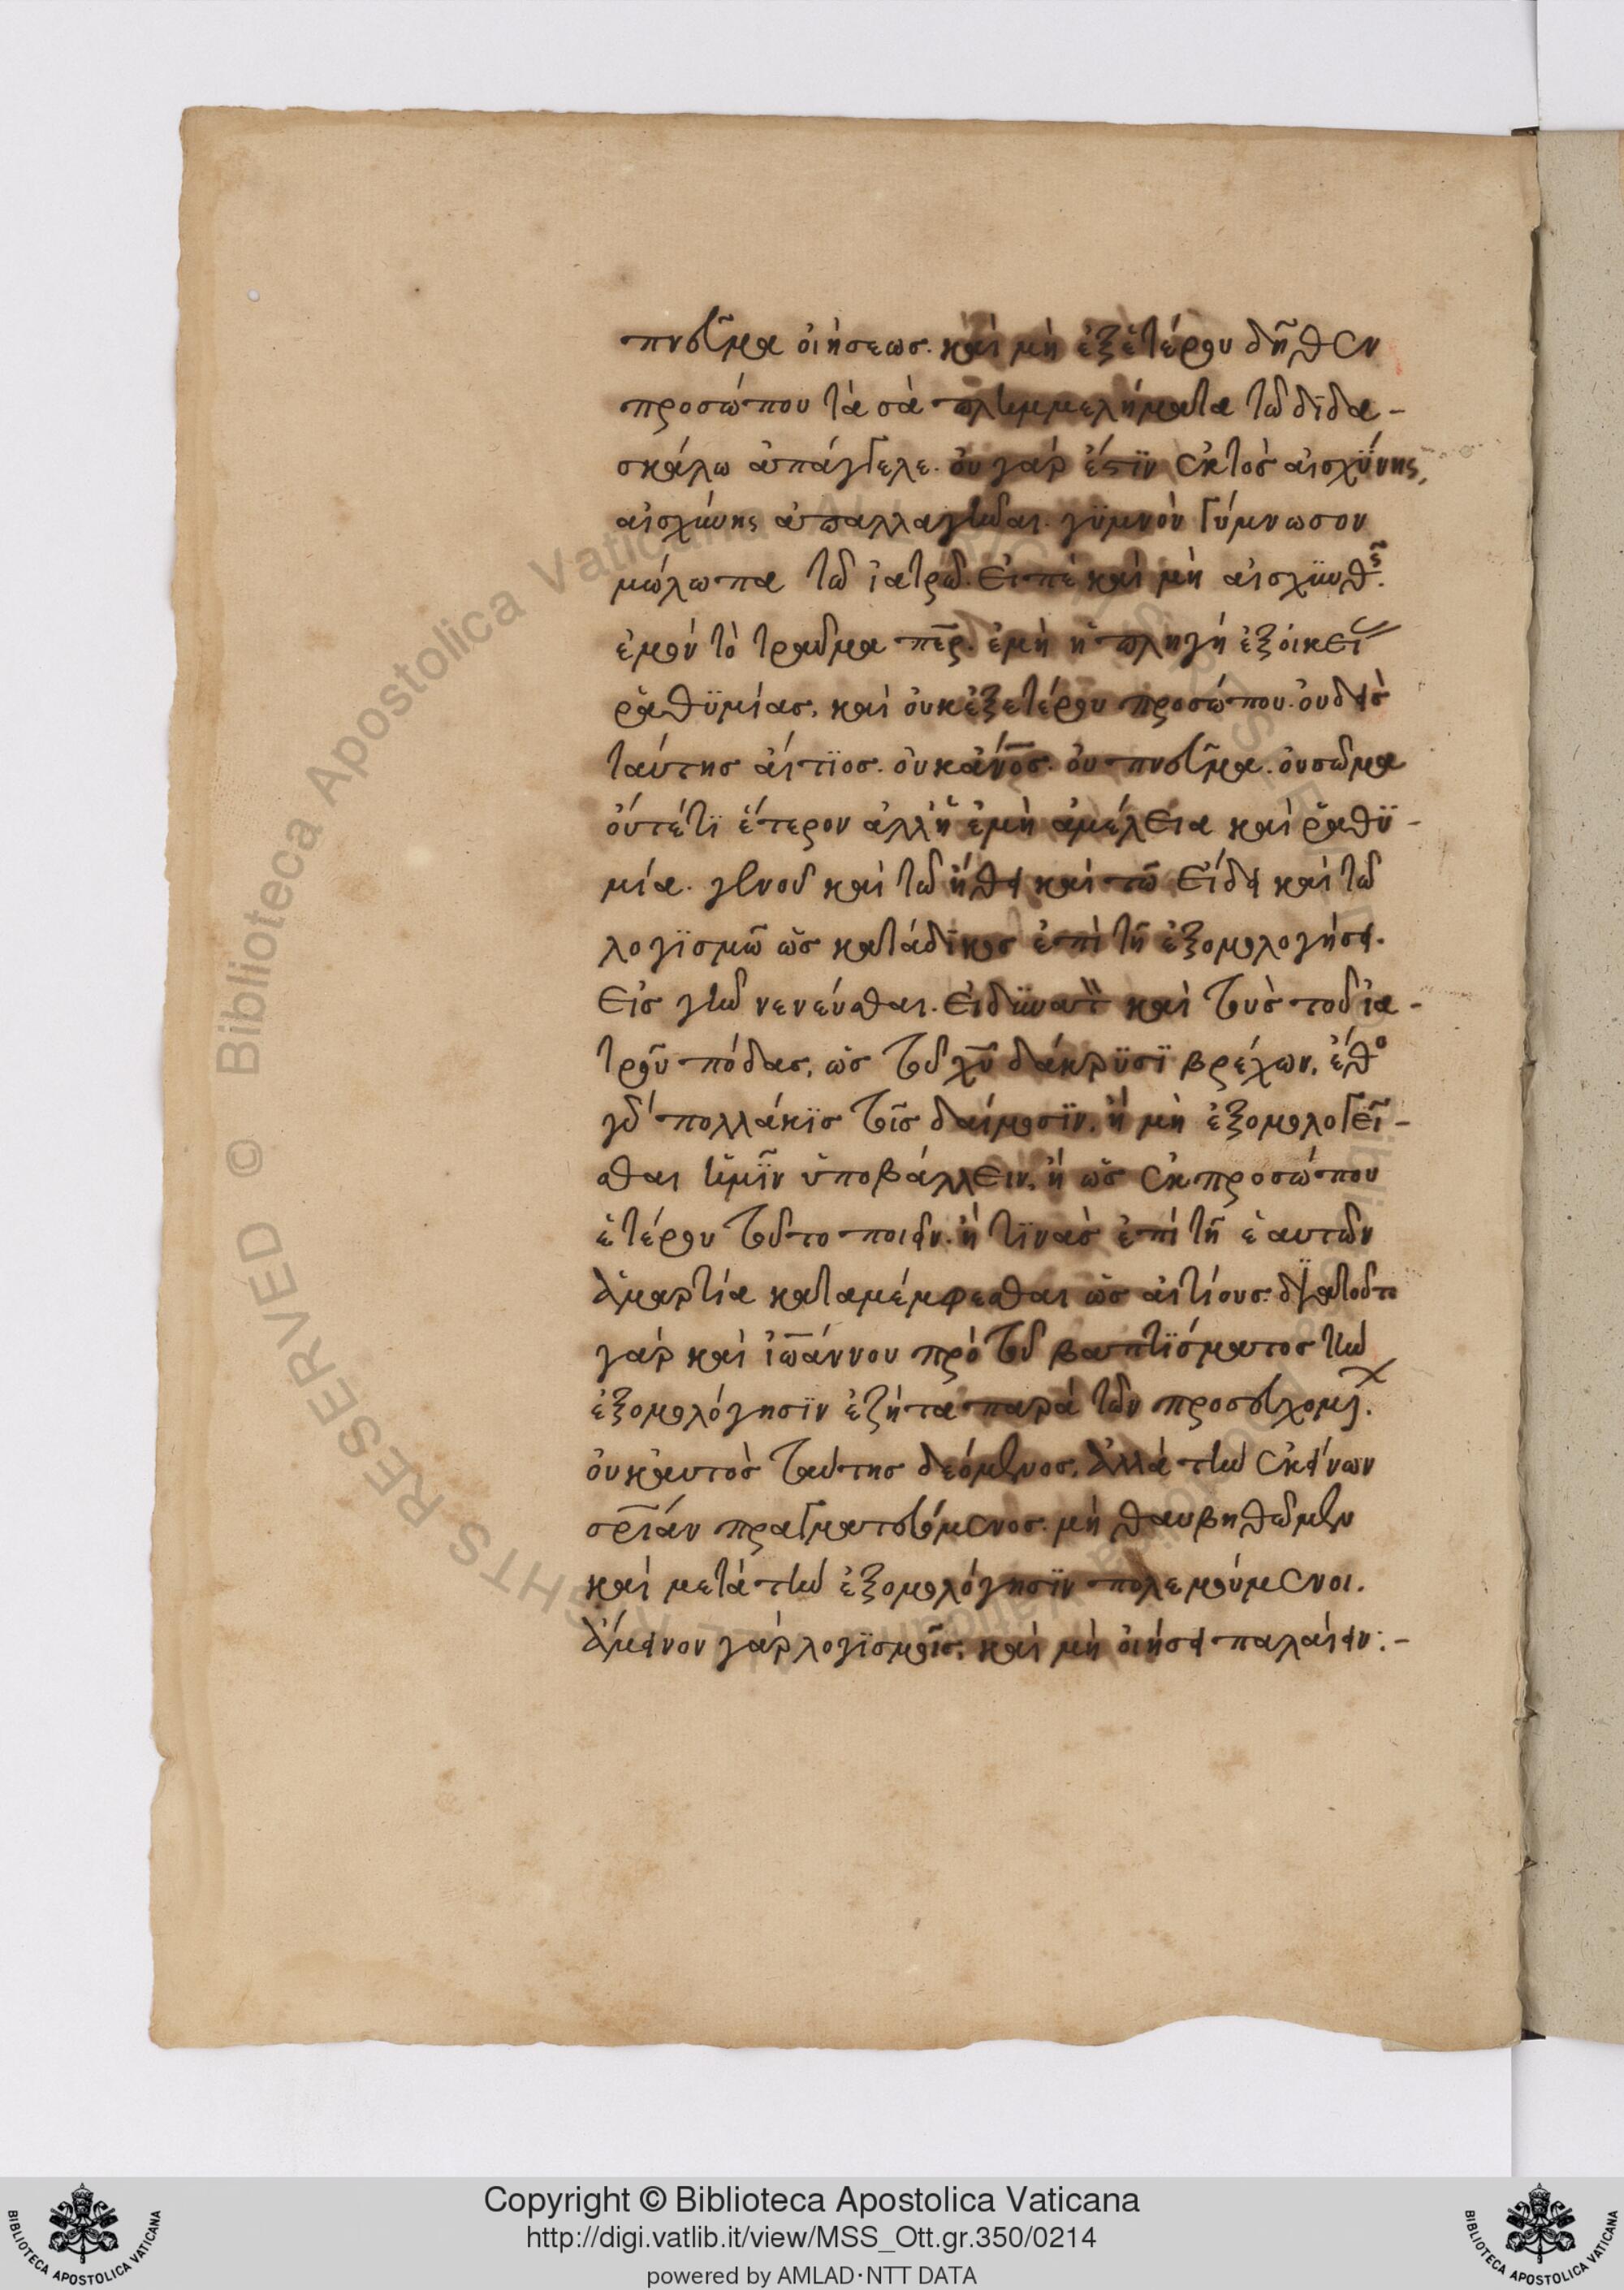 πνεῦμα οἰήσεως. καὶ μὴ ἐξ ἑτέρου δῆθεν
προσώπου τὰ σὰ πλημμελήματα τῶ διδα-
σκάλω ἀπάγγελε. οὐ γάρ ἐστϊν ἐκτὸς αἰσχύνης,
αἰσχύνης ἀπαλλαγῆναι. γϋμνὸν γύμνωσον
μώλωπα τῶ ἰατρῶ. εἰπὲ καὶ μὴ αἰσχϋνθῆς.
ἐμὸν τὸ τραῦμα περ. ἐμὴ ἡ πληγή ἐξ οἰκεί
ῥαθϋμίας, καὶ οὐκ ἐξ ετέρου προσώπου. οὐδεὶς
ταύτης αἴτϊος. οὐκ ἄνος. οὐ πνεῦμα. οὐ σῶμα
οὔτέ τϊ ἕτερον ἀλλ' ἡ ἐμὴ ἀμέλεια καὶ ῥαθϋ-
μία. γενοῦ καὶ τῶ ἤθει καὶ τῶ εἴδει καὶ τῶ
λογϊσμῶ ὡς κατάδϊκος ἐπὶ τῆ ἐξομολογήσει.
εἰς γῆν νενεύσθαι. εἰ δϋνατὸν καὶ τοὺς τοῦ ἰα-
τροῦ πόδας, ὡς τοῦ χῦ δάκρϋσϊ βρέχων. ἔθο
γὰρ πολλάκϊς τοῖς δαίμοσϊν, ἢ μὴ ἐξομολογεῖ-
σθαι ἡμῖν ὑποβάλλειν. ἢ ὡς ἐκ προσώπου
ἑτέρου τοῦτο ποιεῖν. ἢ τϊνὰς ἐπὶ τῆ ἑαυτῶν
ἁμαρτία καταμέμφεσθαι ὡς αἰτίους. δϊατοῦτο
γὰρ καὶ ἰωάννου πρὸ τοῦ βαπτϊσματος τὴν
ἐξομολόγησϊν ἐζήτει παρὰ τῶν προσερχομέ.
οὐκ αυτὸς ταύτης δεόμενος, ἀλλὰ τὴν ἐκείνων
σρίαν πραγματευόμενος. μὴ θαυβηθῶμεν
καὶ μετὰ τὴν ἐξομολόγησϊν πολεμούμενοι.
ἄμεινον γὰρ λογϊσμοῖς, καὶ μὴ οἰήσει παλαίειν:-
Copyright © Biblioteca Apostolica Vaticana
http://digi.vatlib.it/view/MSS_Ott.gr.350/0214
powered by AMLAD·NTT DATA
BIBLIOTECA APOSTOLICA VATICANA
BIBLIOTECA APOSTOLICA VATICANA